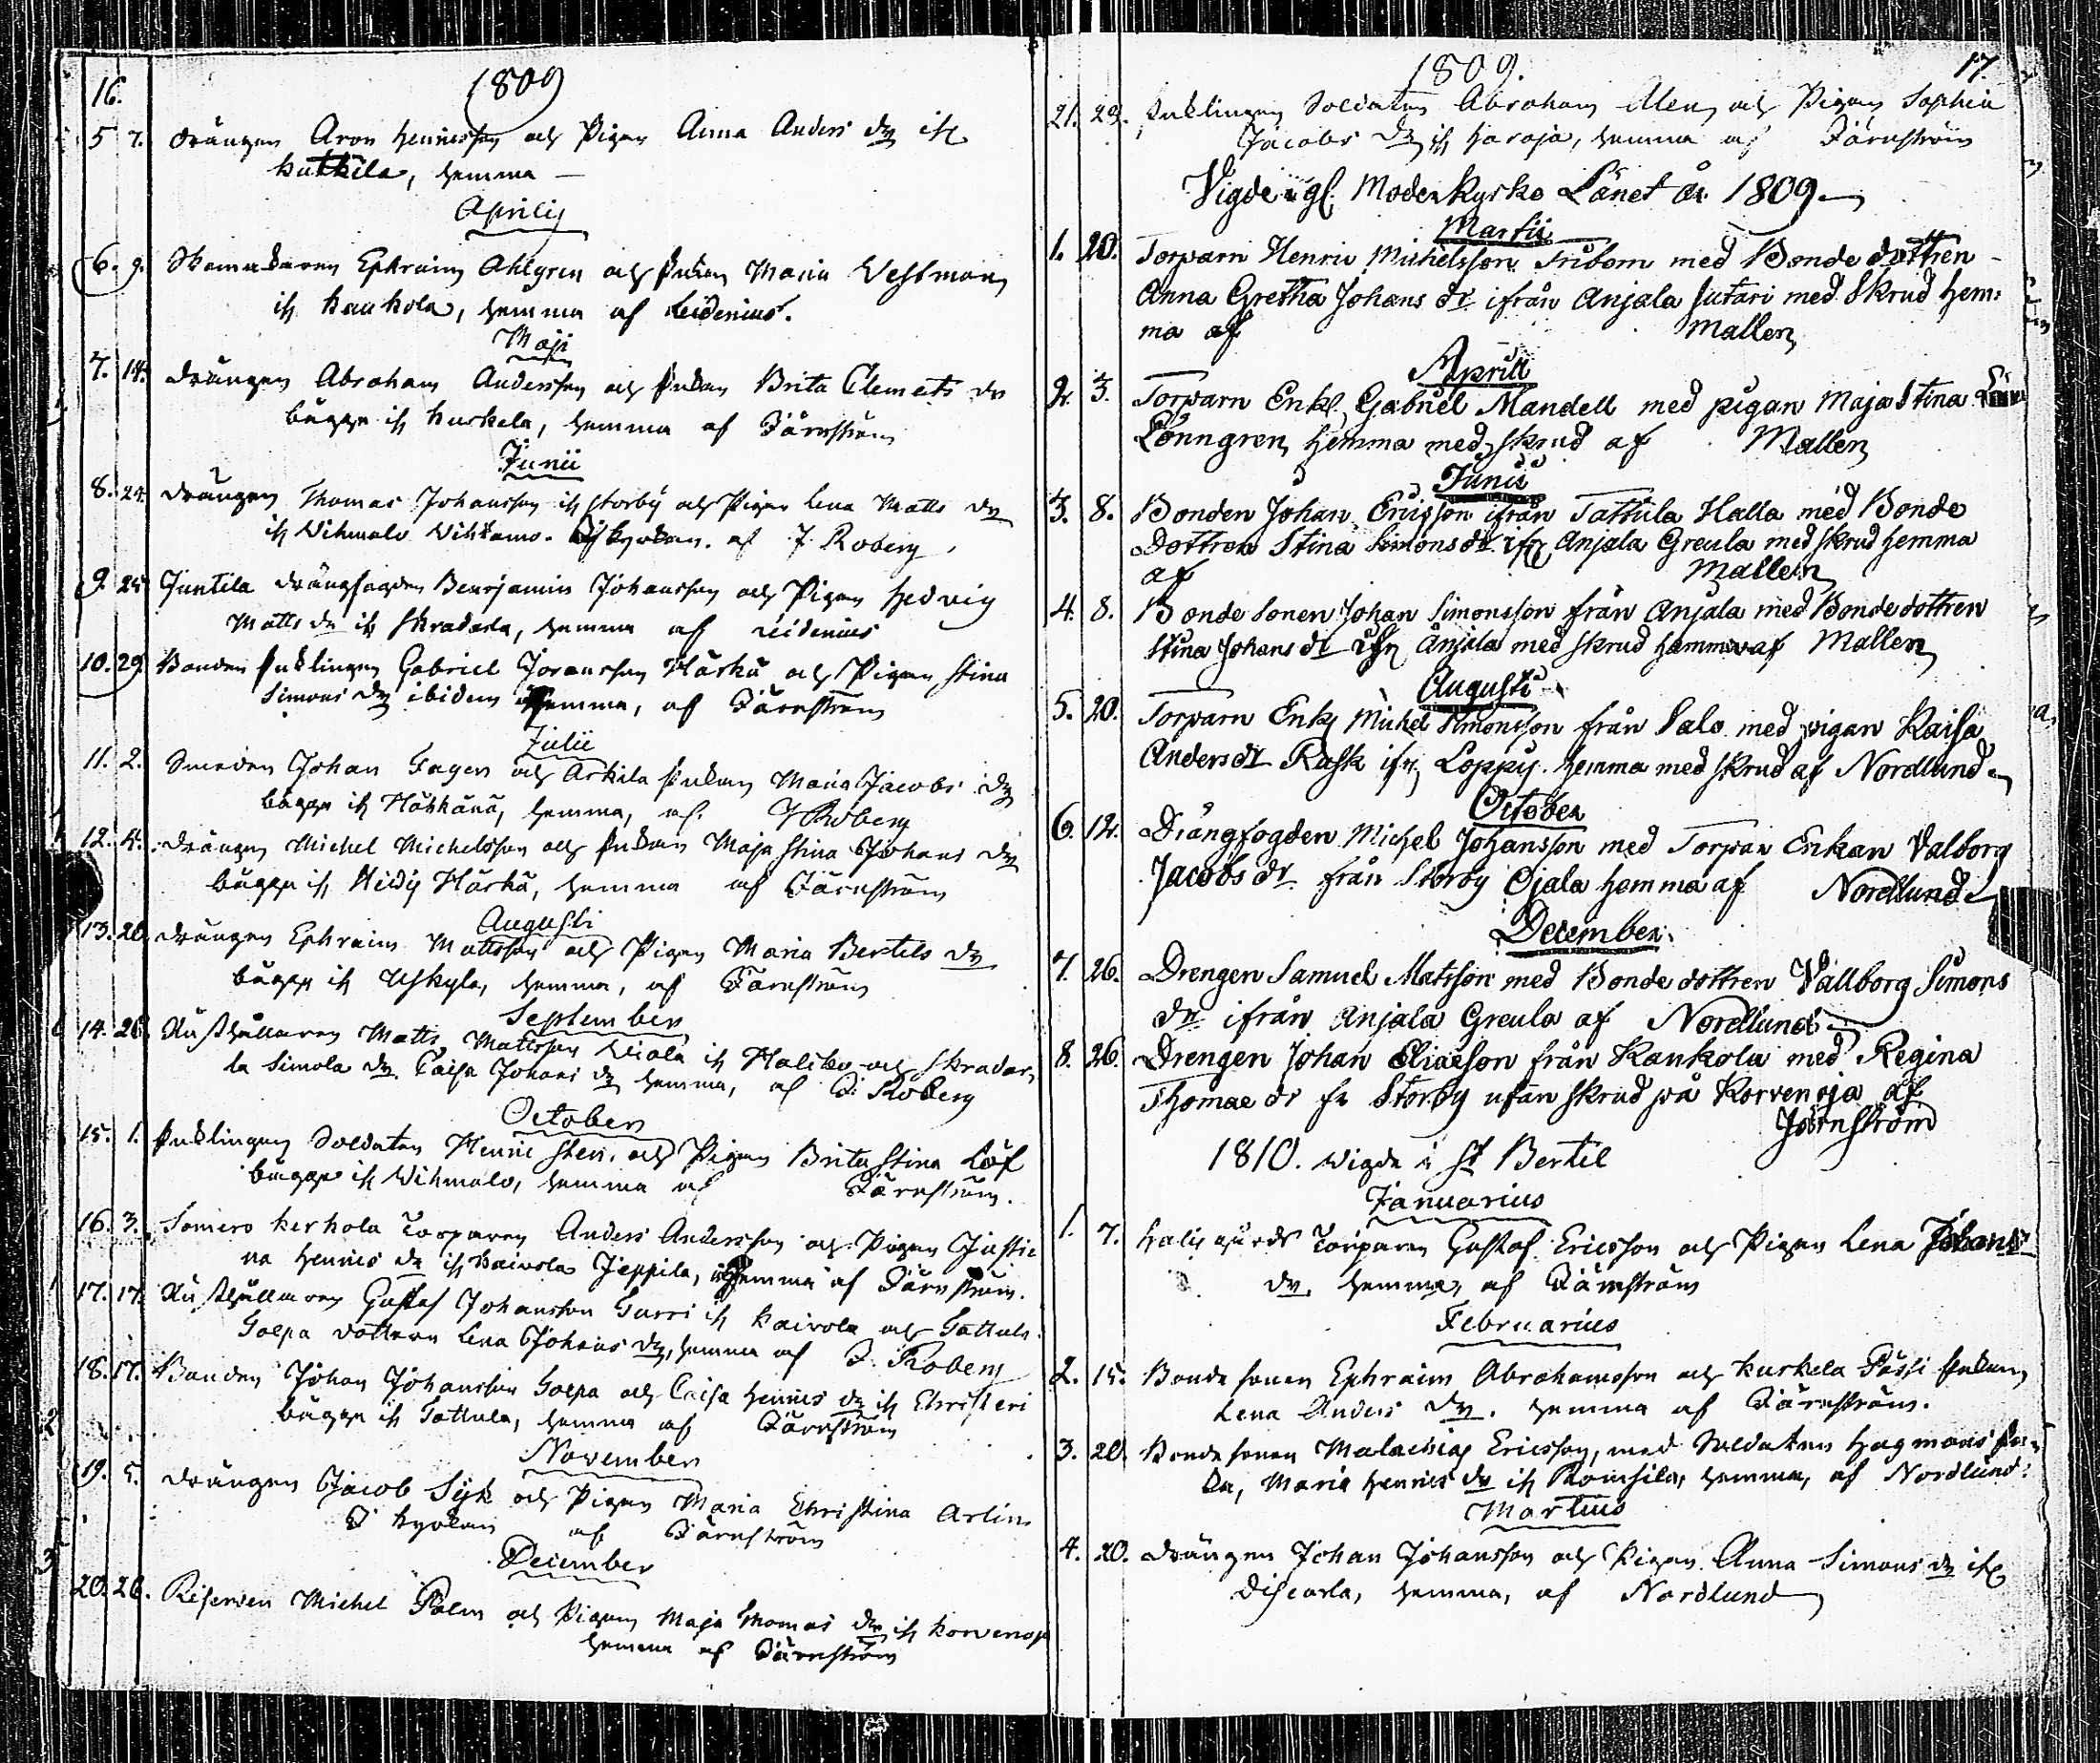 16.
1809
5 7. Drängen Aron Henricsson och Pigan Anna Anders dr ifr
Kutkila, hemma —
Aprilis
6. 9. Skomakaren Ephraim Ahlgren och Enkan Maria Vestman
ifr Kaukola, hemma af Leidenius.
Maji
7. 14. Drängen Abraham Andersson och Enkan Brita Clemets dr
bägge ifr Kurkela, hemma af Järnström
Junii
8. 24. Drängen Thomas Johansson ifr Storby och Pigan Lena Matts dr
ifr Vihmalo i kyrkan. af J Roberg
9. 25. Juntila Drängfogden Benjamin Johansson och Pigan Hedvig
Matts dr ifr Skradarla, hemma af Leidenius
10. 29. Bonden Enklingen Gabriel Joransson Härkä och Pigan Stina
Simons dr ibidem hemma, af Järnström
Julii
11. 2. Smeden Johan Fagen och Arkila Enkan Maria Jacobs dr
bägge ifr Häkkänä, hemma, af. J Roberg
12. 4. Drängen Michel Michelsson och Enkan Maja Stina Johans dr
bägge ifr Härkä, hemma af Järnström
Augusti
13. 20. Drängen Ephraim Mattsson och Pigan Maria Bertels dr
bägge ifr Uskyla, hemma, af Järnström
September
14. 26. Rusthållaren Matts Mattsson ifr och Skradar,,
la Simola dr. Caisa Johans dr hemma, af J: Roberg
October
15. 1. Enklingen Soldaten Henric Sten, och Pigan Brita Stina Löf
bägge ifr Vihmalo, hemma af Järnström.
16. 3. Somero Kerkola Torparen Anders Andersson och Pigan Justi
na Henrics dr ifr Kaivola Jeppila, hemma af Järnström.
17. 17. Rusthållaren Gustaf Johansson ifr Kaivola och Tattula
Golpa dottern Lena Johans dr, hemma af J. Roberg
18. 17. Bonden Johan Johansson Golpa och Caisa Henrics dr ifr Christeri
bägge ifr Tattula, hemma af Järnström
November
19. 5. Drängen Jacob Sijk och Pigan Maria Christina Arlin
I kyrkan af Järnström
December
20. 26. Michel Palm och Pigan Maja Thomas dr ifr Korvenoja
hemma af Järnström
1809.
17.
21. 29. Enklingen Soldaten Abraham Alen och Pigan Sophia
Jacobs dr ifr Haroja, hemma af Järnström
Vigde i Moderkyrko Länet år 1809
Martii
1. 20. Torparn Henric Michelsson Fribom med Bonde dottren
Anna Gretha Johans dr ifrån Anjala Sutari med Skrud Hem:
ma af Mallen
Aprill
2. 3. Torparn Enkl. Gabriel Mandell med pigan Maja Stina
Lönngren, Hemma med skrud af Mallen
Junii
3. 8. Bonden Johan Ericsson ifrån Tattula Halla med Bonde
Dottren Stina Simons dr ifr Anjala Greula med skrud hemma
af Mallen
4. 8. Bonde Sonen Johan Simonsson från Anjala med Bonde dottren
Stina Johans dr ifr Anjala med skrud hemma af Mallen
Augusti
5. 20. Torparn Enkl Michel Simonsson från Salo med pigan Kaisa
Anders dr Rask ifr Loppij. hemma med skrud af Nordlund
October
6. 12. Drängfogden Michel Johansson med Torpar Enkan Valborg
Jacobs dr från Storby Ojala hemma af Nordlund
December
7. 26. Drengen Samuel Matsson med Bonde dottren Vallborg Simons
dr ifrån Anjala Greula af Nordlund
8. 26. Drengen Johan Eliaeson från Kaukola med Regina
Thomae dr fr Storby utan skrud på Korvenoja af
Järnström
1810. Vigde i St Bertil
Januarius
1. 7. Torparen Gustaf Ericsson och Pigan Lena Johans
dr, hemma, af Järnström
Februarius
2. 15. Bonde sonen Ephraim Abrahamsson och Kurkela Pässi Enkan
Lena Anders dr. hemma af Järnström.
3. 20. Bonde sonen Malachias Ericsson, med Soldaten Hagmans En,,
ka, Maria Henrics dr ifr hemma, af Nordlund.
Martius
4. 20. Drängen Johan Johansson och Pigan Anna Simons dr ifr
Discarla, hemma, af Nordlund